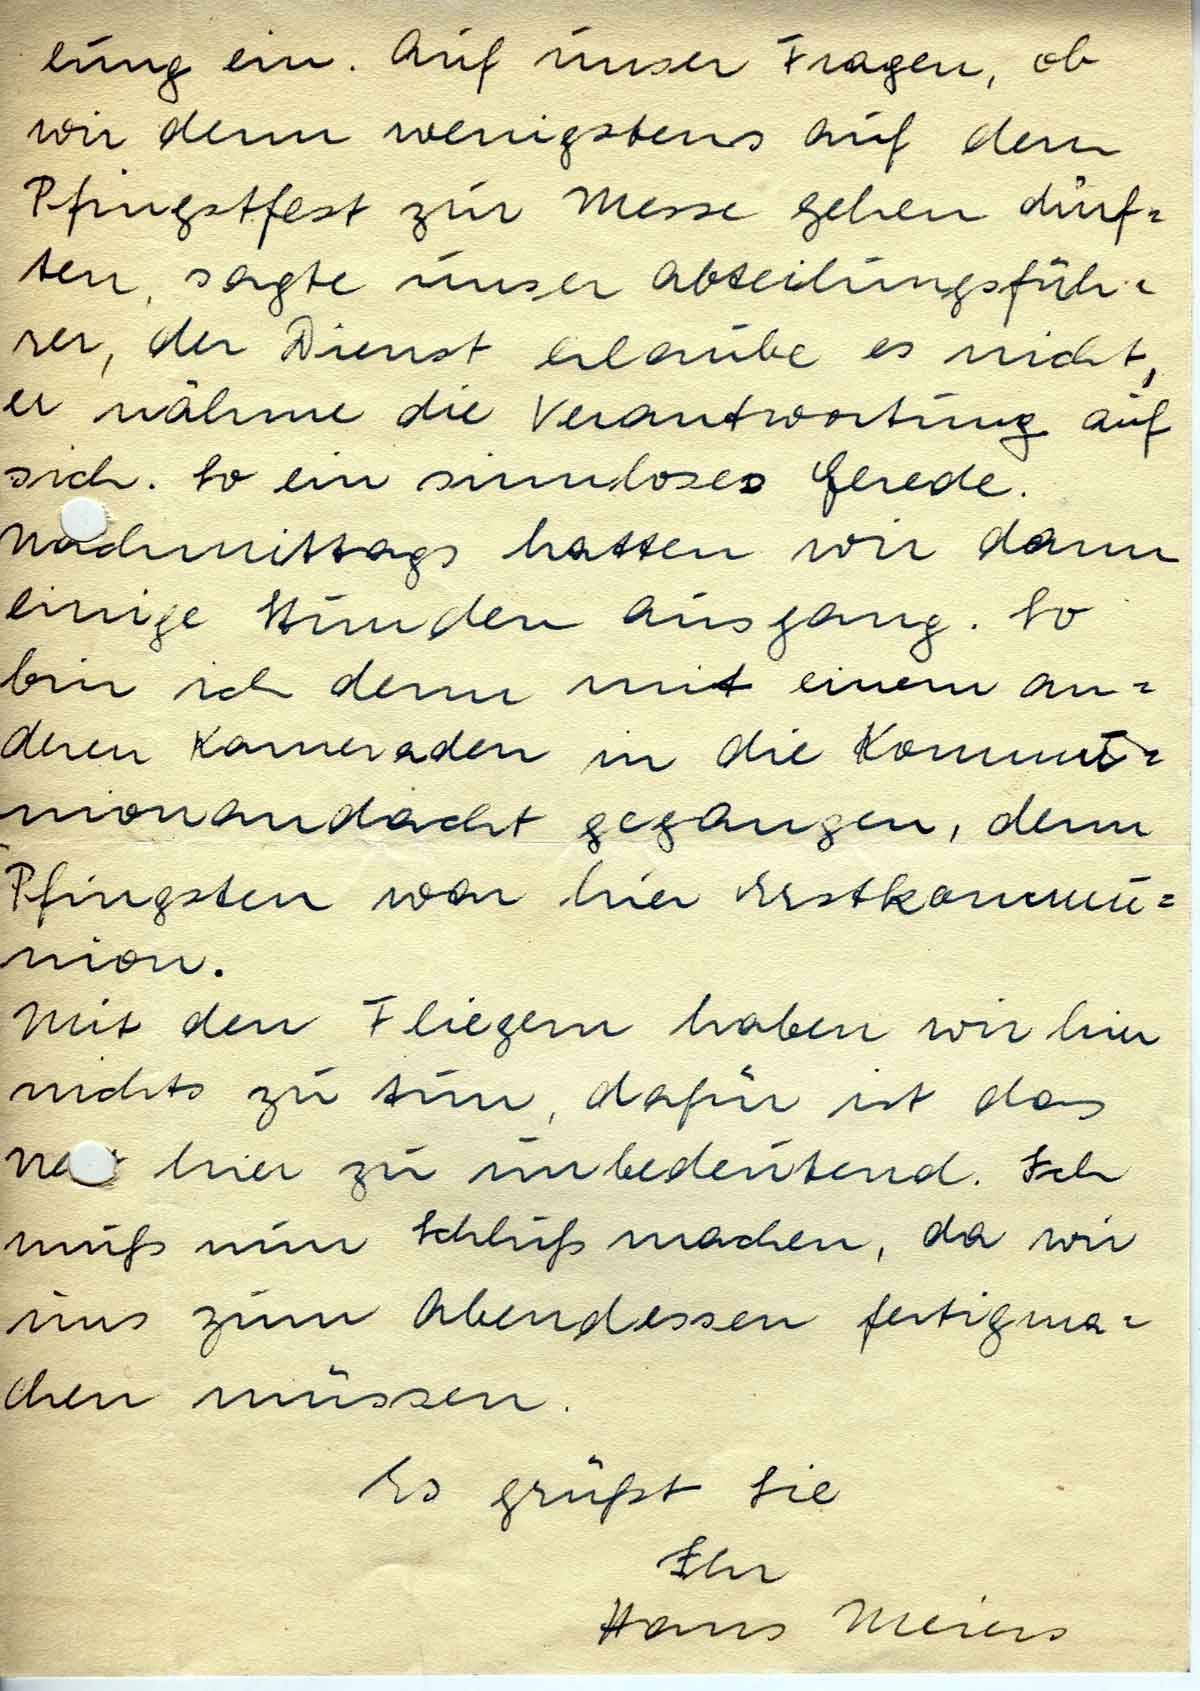 lung ein. Auf unser Fragen, ob
wir denn wenigstens auf dem
Pfingstfest zur Messe gehen dürf=
ten, sagte unser Abteilungsfüh=
rer, der Dienst erlaube es nicht,
er nähme die Verantwortung auf
sich. So ein sinnloses Gerede.
Nachmittags hatten wir dann
einige Stunden Ausgang. So
bin ich denn mit einem an=
deren Kameraden in die Kommu=
nionandacht gegangen, denn
Pfingsten war hier Erstkommu=
nion.
Mit den Fliegern haben wir hier
nichts zu tun, dafür ist das
hier zu unbedeutend. Ich
muß nun Schluß machen, da wir
uns zum Abendessen fertigma=
chen müssen.
Es grüßt Sie
Ihr
Hans Meiers